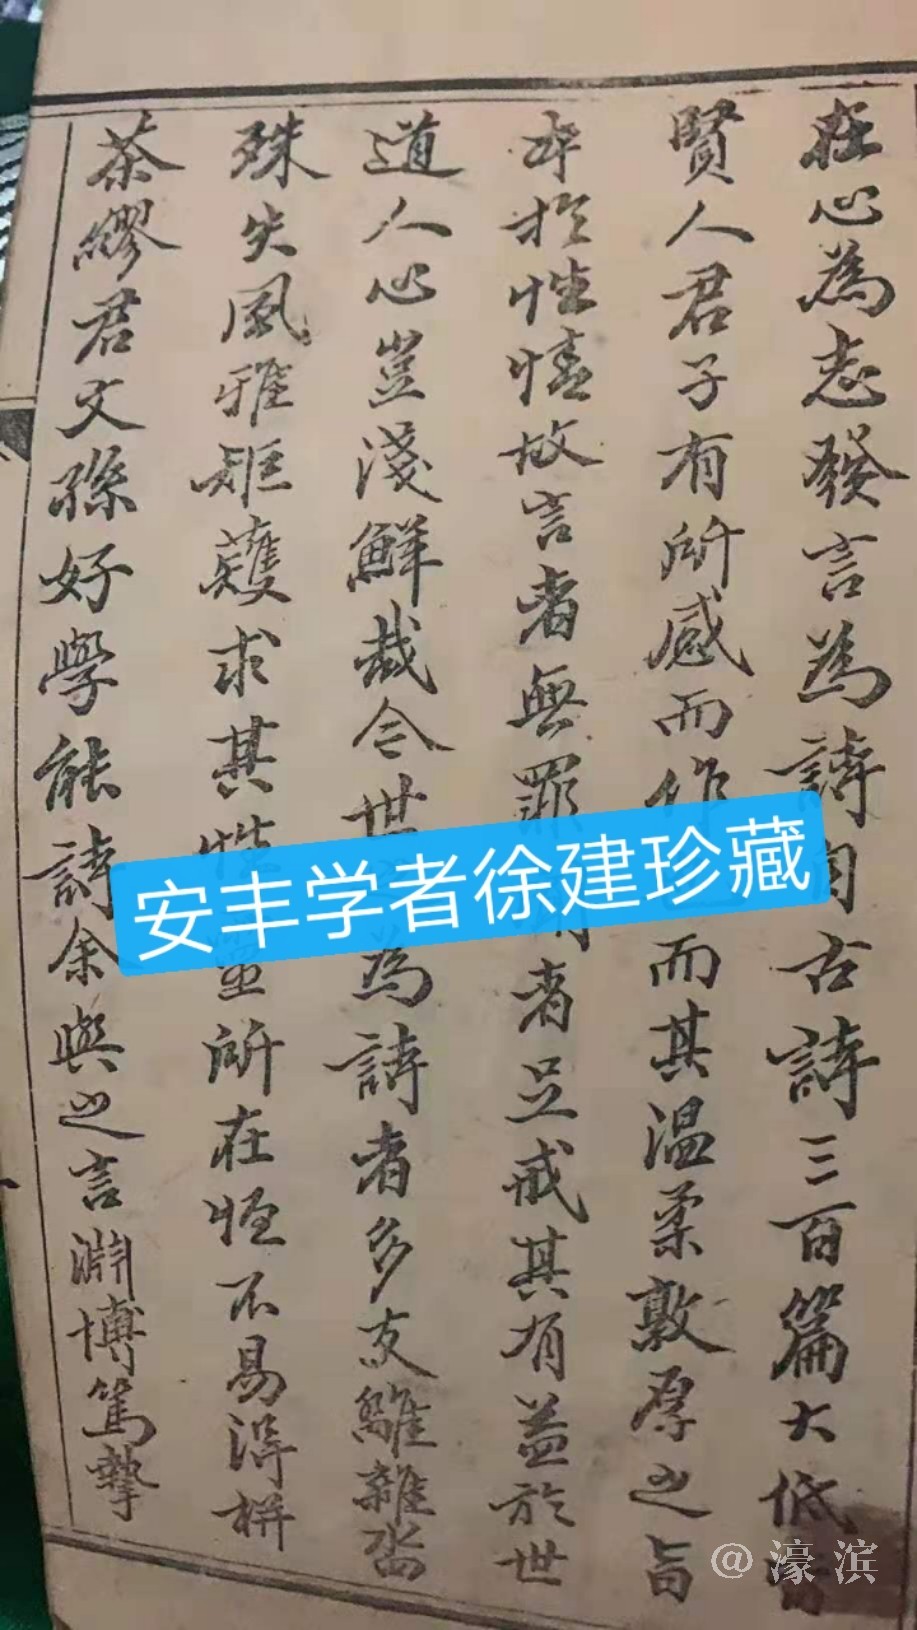 在心為志發言為詩自古詩三百篇大低皆
賢人君子有所感而作也而其温柔敦厚之旨
本於性情故言者無罪聞者足戒其有益於世
道人心豈淺鮮哉今世之為詩者多支離雜沓
殊失風雅矩蒦求其性靈所在恆不易得栟
茶繆君文孫好學能詩余與之言淵博篤摯
安丰学者徐建珍藏
@濠滨